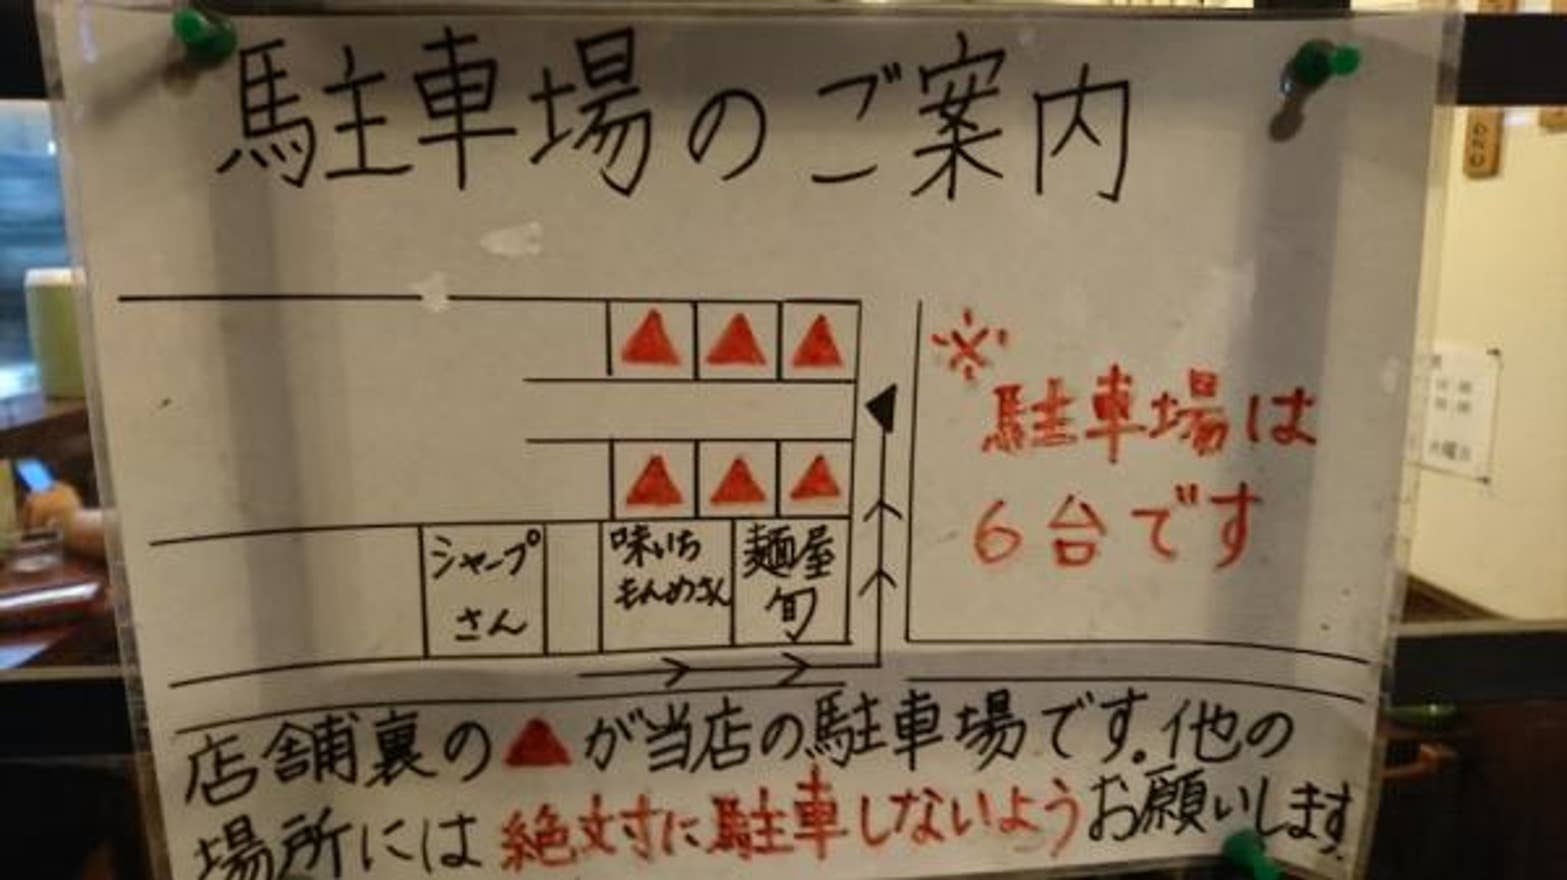 駐車場のご案内
※
駐車場は
6台です
シャープ
さん
味いち
もんめさん
麺屋
旬
店舗裏の▲が当店の駐車場です。他の
場所には絶対に駐車しないようお願いします。